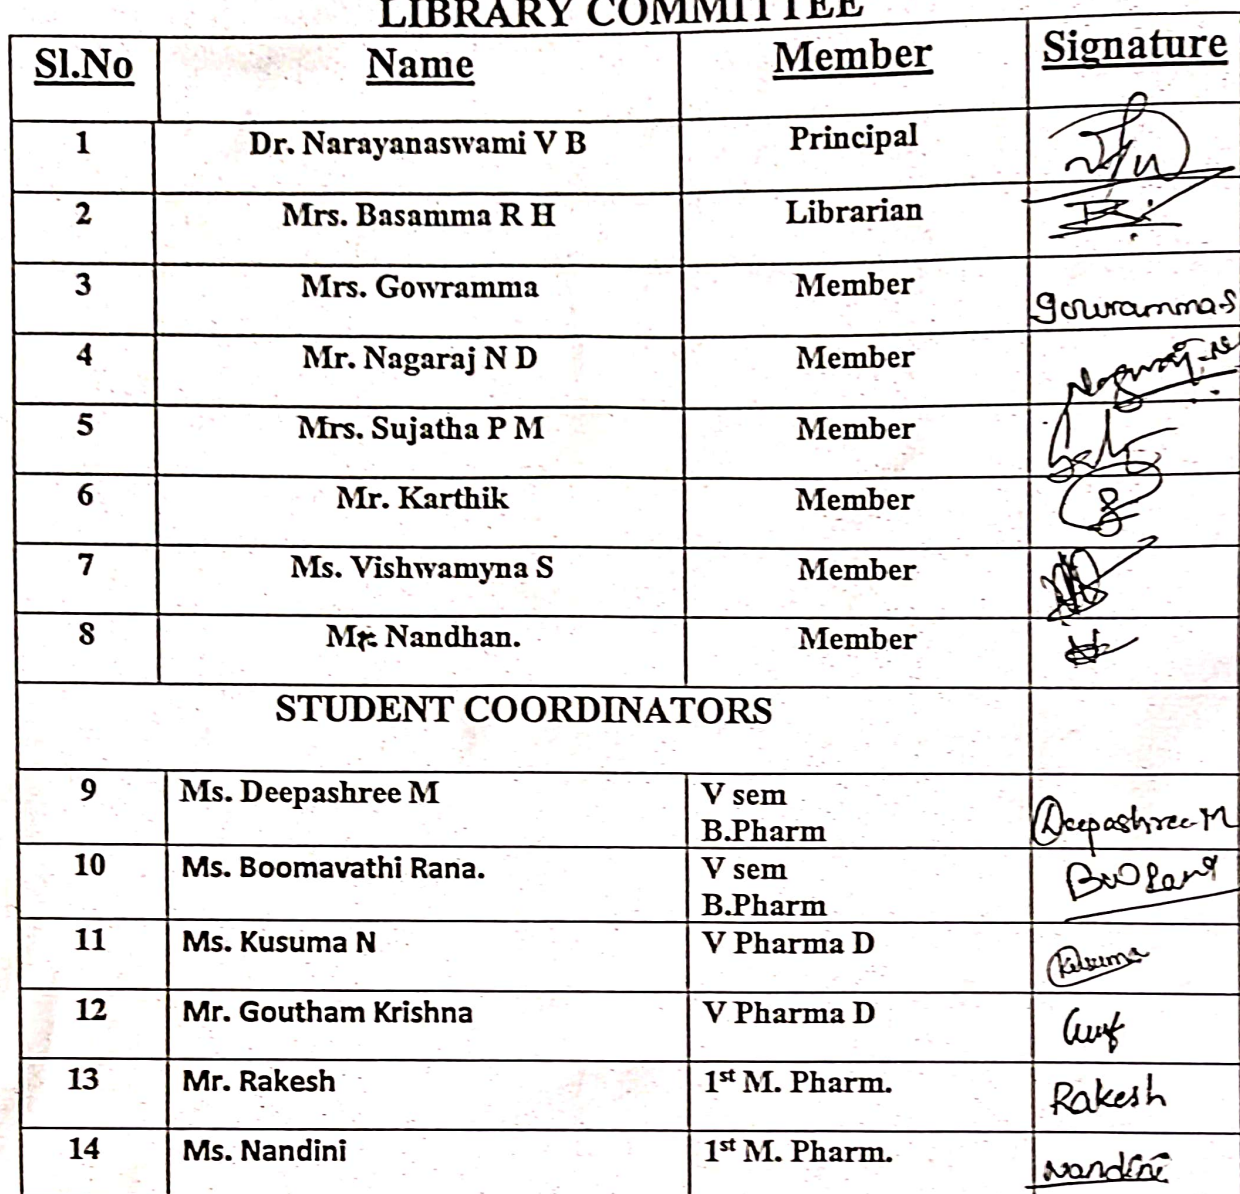 LIBRARY COMMITTEE
Sl.No Name Member Signature
1 Dr. Narayanaswami V B Principal
2 Mrs. Basamma R H Librarian
3 Mrs. Gowramma Member Gowramma.S
4 Mr. Nagaraj N D Member Nagaraj.N
5 Mrs. Sujatha P M Member
6 Mr. Karthik Member
7 Ms. Vishwamyna S Member
8 Mr. Nandhan. Member
STUDENT COORDINATORS
9 Ms. Deepashree M V sem Deepashree M
B.Pharm
10 Ms. Boomavathi Rana. V sem
B.Pharm
11 Ms. Kusuma N V Pharma D Kusuma
12 Mr. Goutham Krishna V Pharma D
13 Mr. Rakesh 1st M. Pharm. Rakesh
14 Ms. Nandini 1st M. Pharm. Nandini